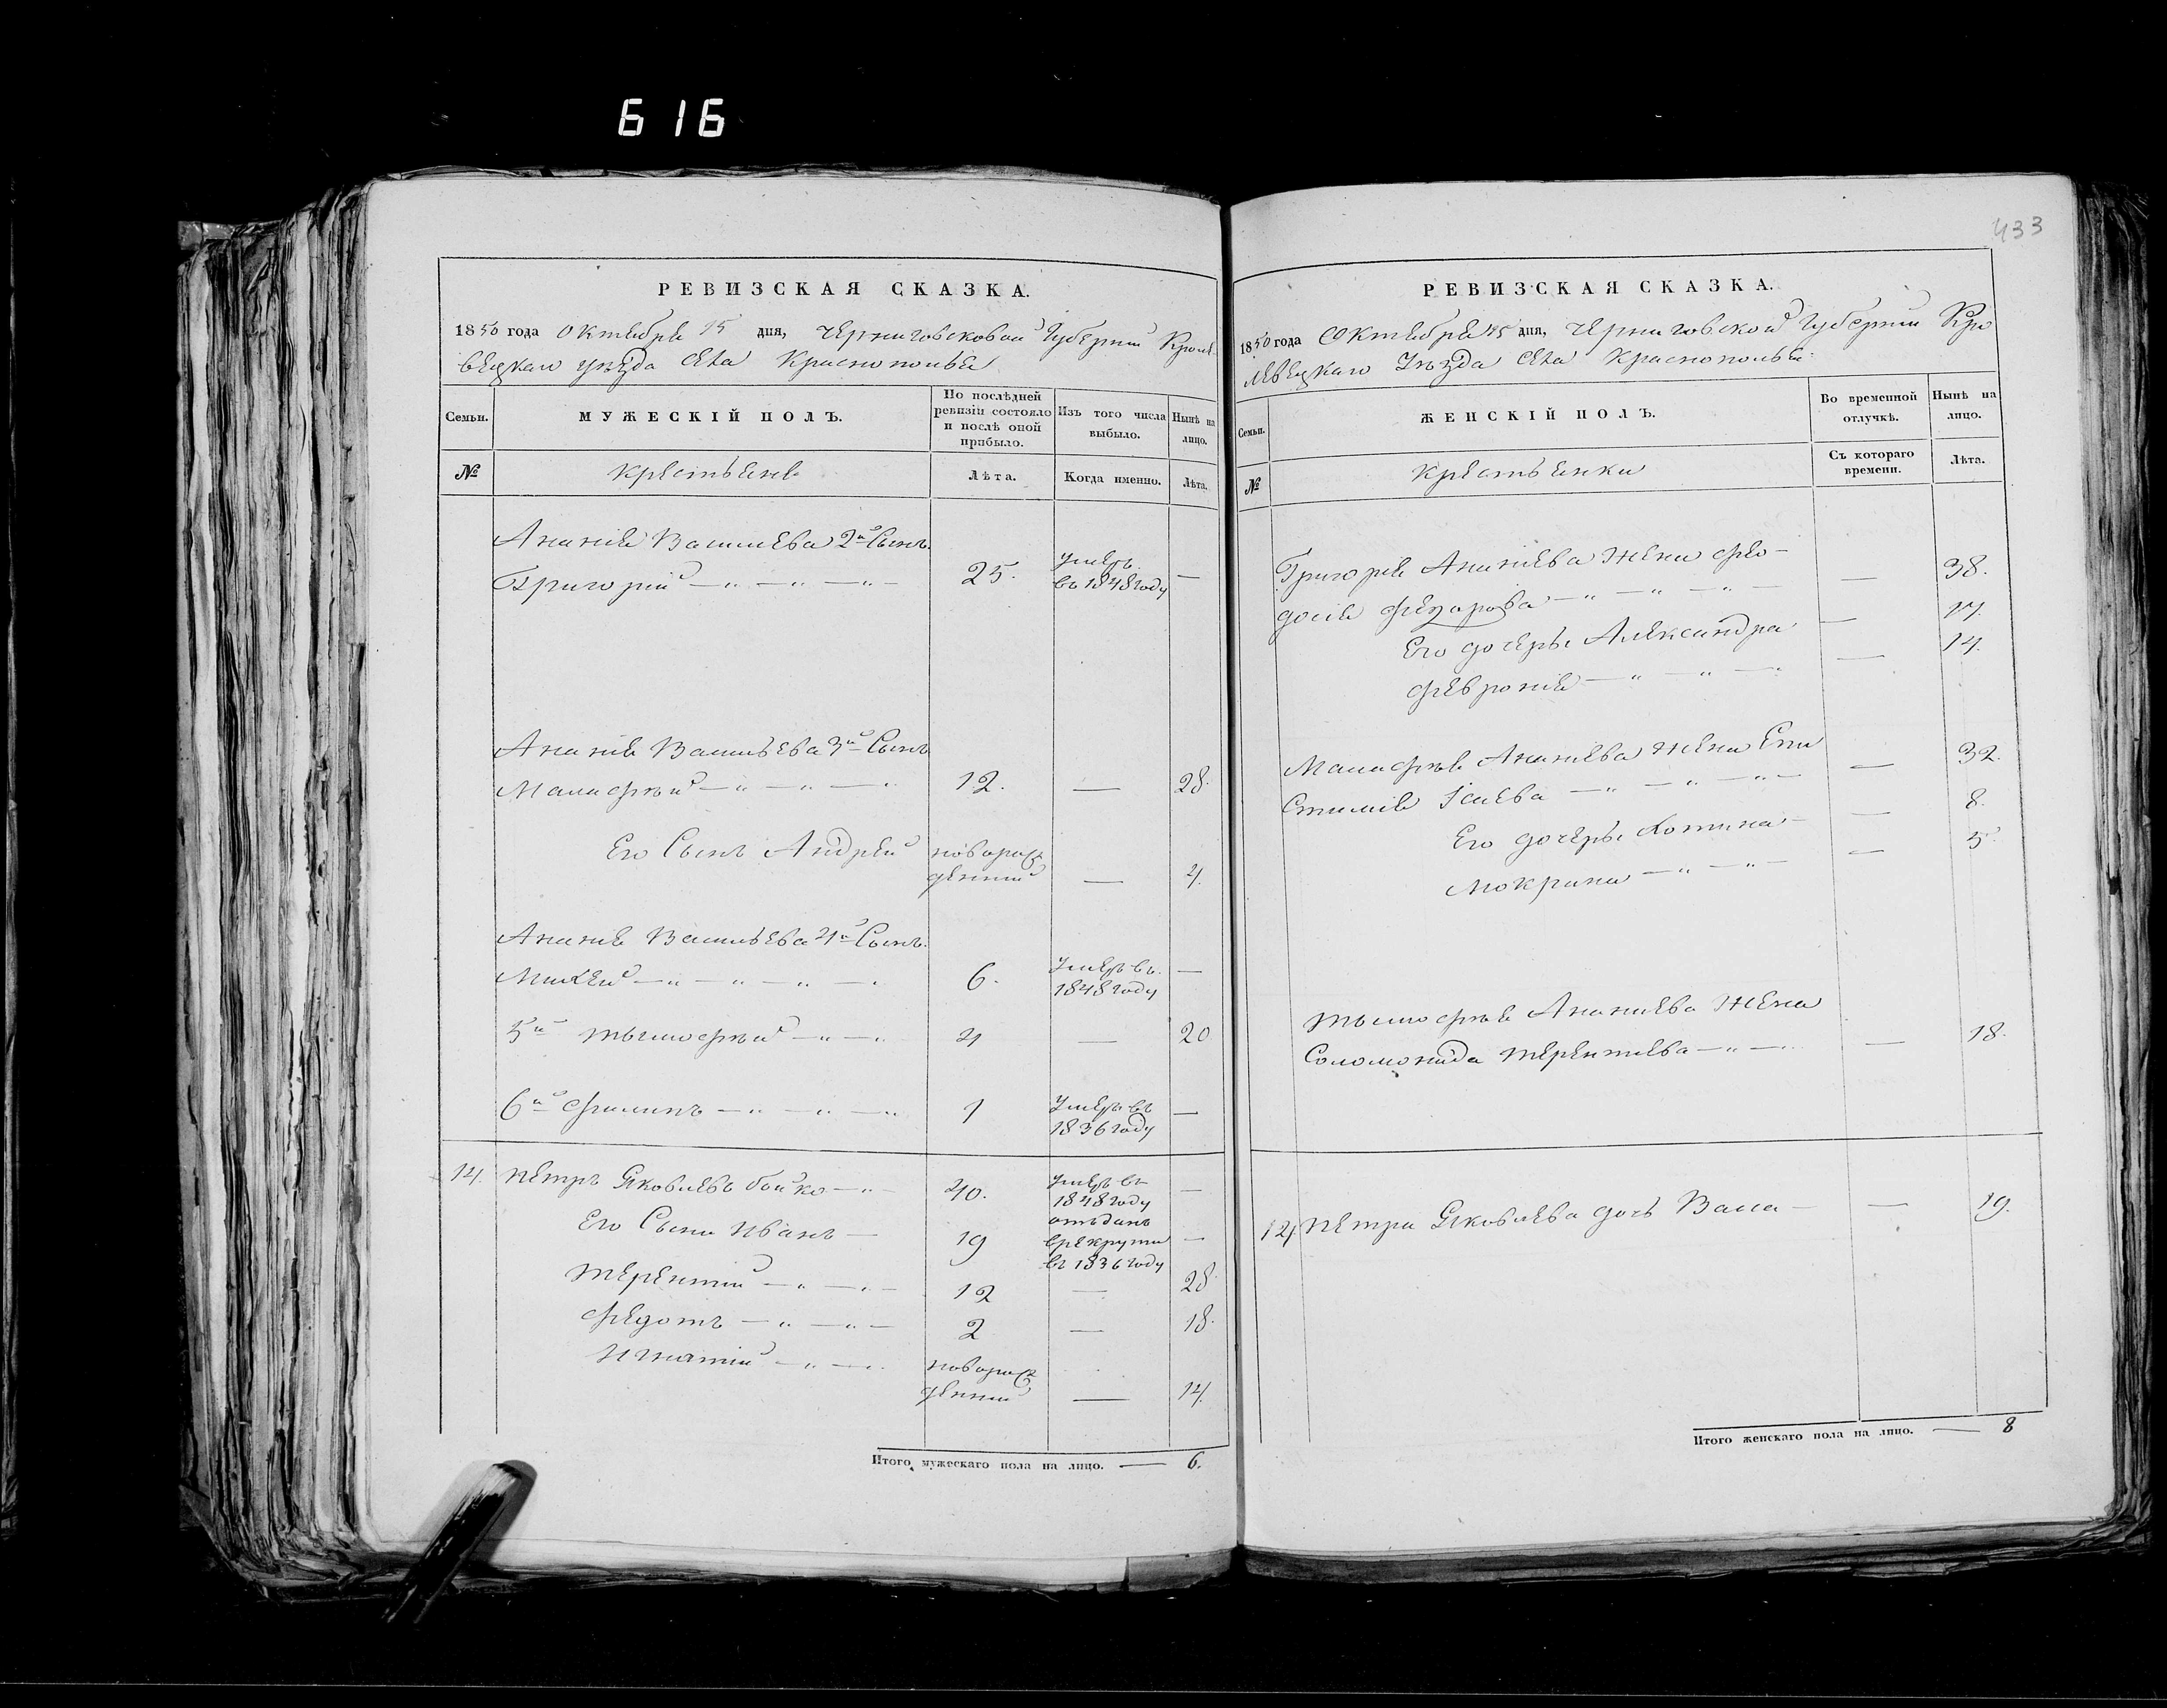 616
433
РЕВИЗСКАЯ СКАЗКА.
1850 года Октября 15 дня, Черниговской Губернии Кроле
вецкаго уѣзда села Краснополья
Семьи.
МУЖЕСКІЙ ПОЛЪ.
По послѣдней ревизіи состояло и послѣ оной прибыло.
Изъ того числа выбыло.
Нынѣ на лицо.
№
Крестьяне
Лѣта.
Когда именно.
Лѣта.
Анания Васильева 2й Сынъ
Григорий 25. Умеръ
въ 1848 году —
Анания Васильева 3й Сынъ
Малафѣй 12. — 28.
Его Сынъ Андрей новорож
денний — 4.
Анания Васильева 4й Сынъ
Михей 6. Умеръ въ
1848 году —
5й Тымофѣй 4 — 20
6й Филипъ 1 Умеръ въ
1836 году —
14. Петръ Яковлевъ Бойко 40. Умеръ въ
1848 году —
Его Сыни Иванъ 19 отъданъ
врекрути
въ 1836 году —
Терентий 12 — 28
Федотъ 2 — 18.
Игнатий новорож
денний — 14.
Итого мужескаго пола на лицо. — 6.
РЕВИЗСКАЯ СКАЗКА.
1850 года Октября 15 дня, Черниговской Губернии Кро
левецкаго Уѣзда села Краснополья
Семьи.
ЖЕНСКІЙ ПОЛЪ.
Во временной отлучкѣ.
Нынѣ на лицо.
№
Крестьянки
Съ котораго времени.
Лѣта.
Григория Ананиева Жена Фео-
досия — 38.
Его дочеры Александра — 17.
Феврония — 14.
Малафѣя Ананиева Жена Епи
стимия Исаева — 32.
Его дочеры — 8.
Мокрина — 5.
Тымофѣя Ананиева Жена
Соломонида Терентиева — 18.
14. Петра Яковлева дочь Васса — 19.
Итого женскаго пола на лицо. — 8